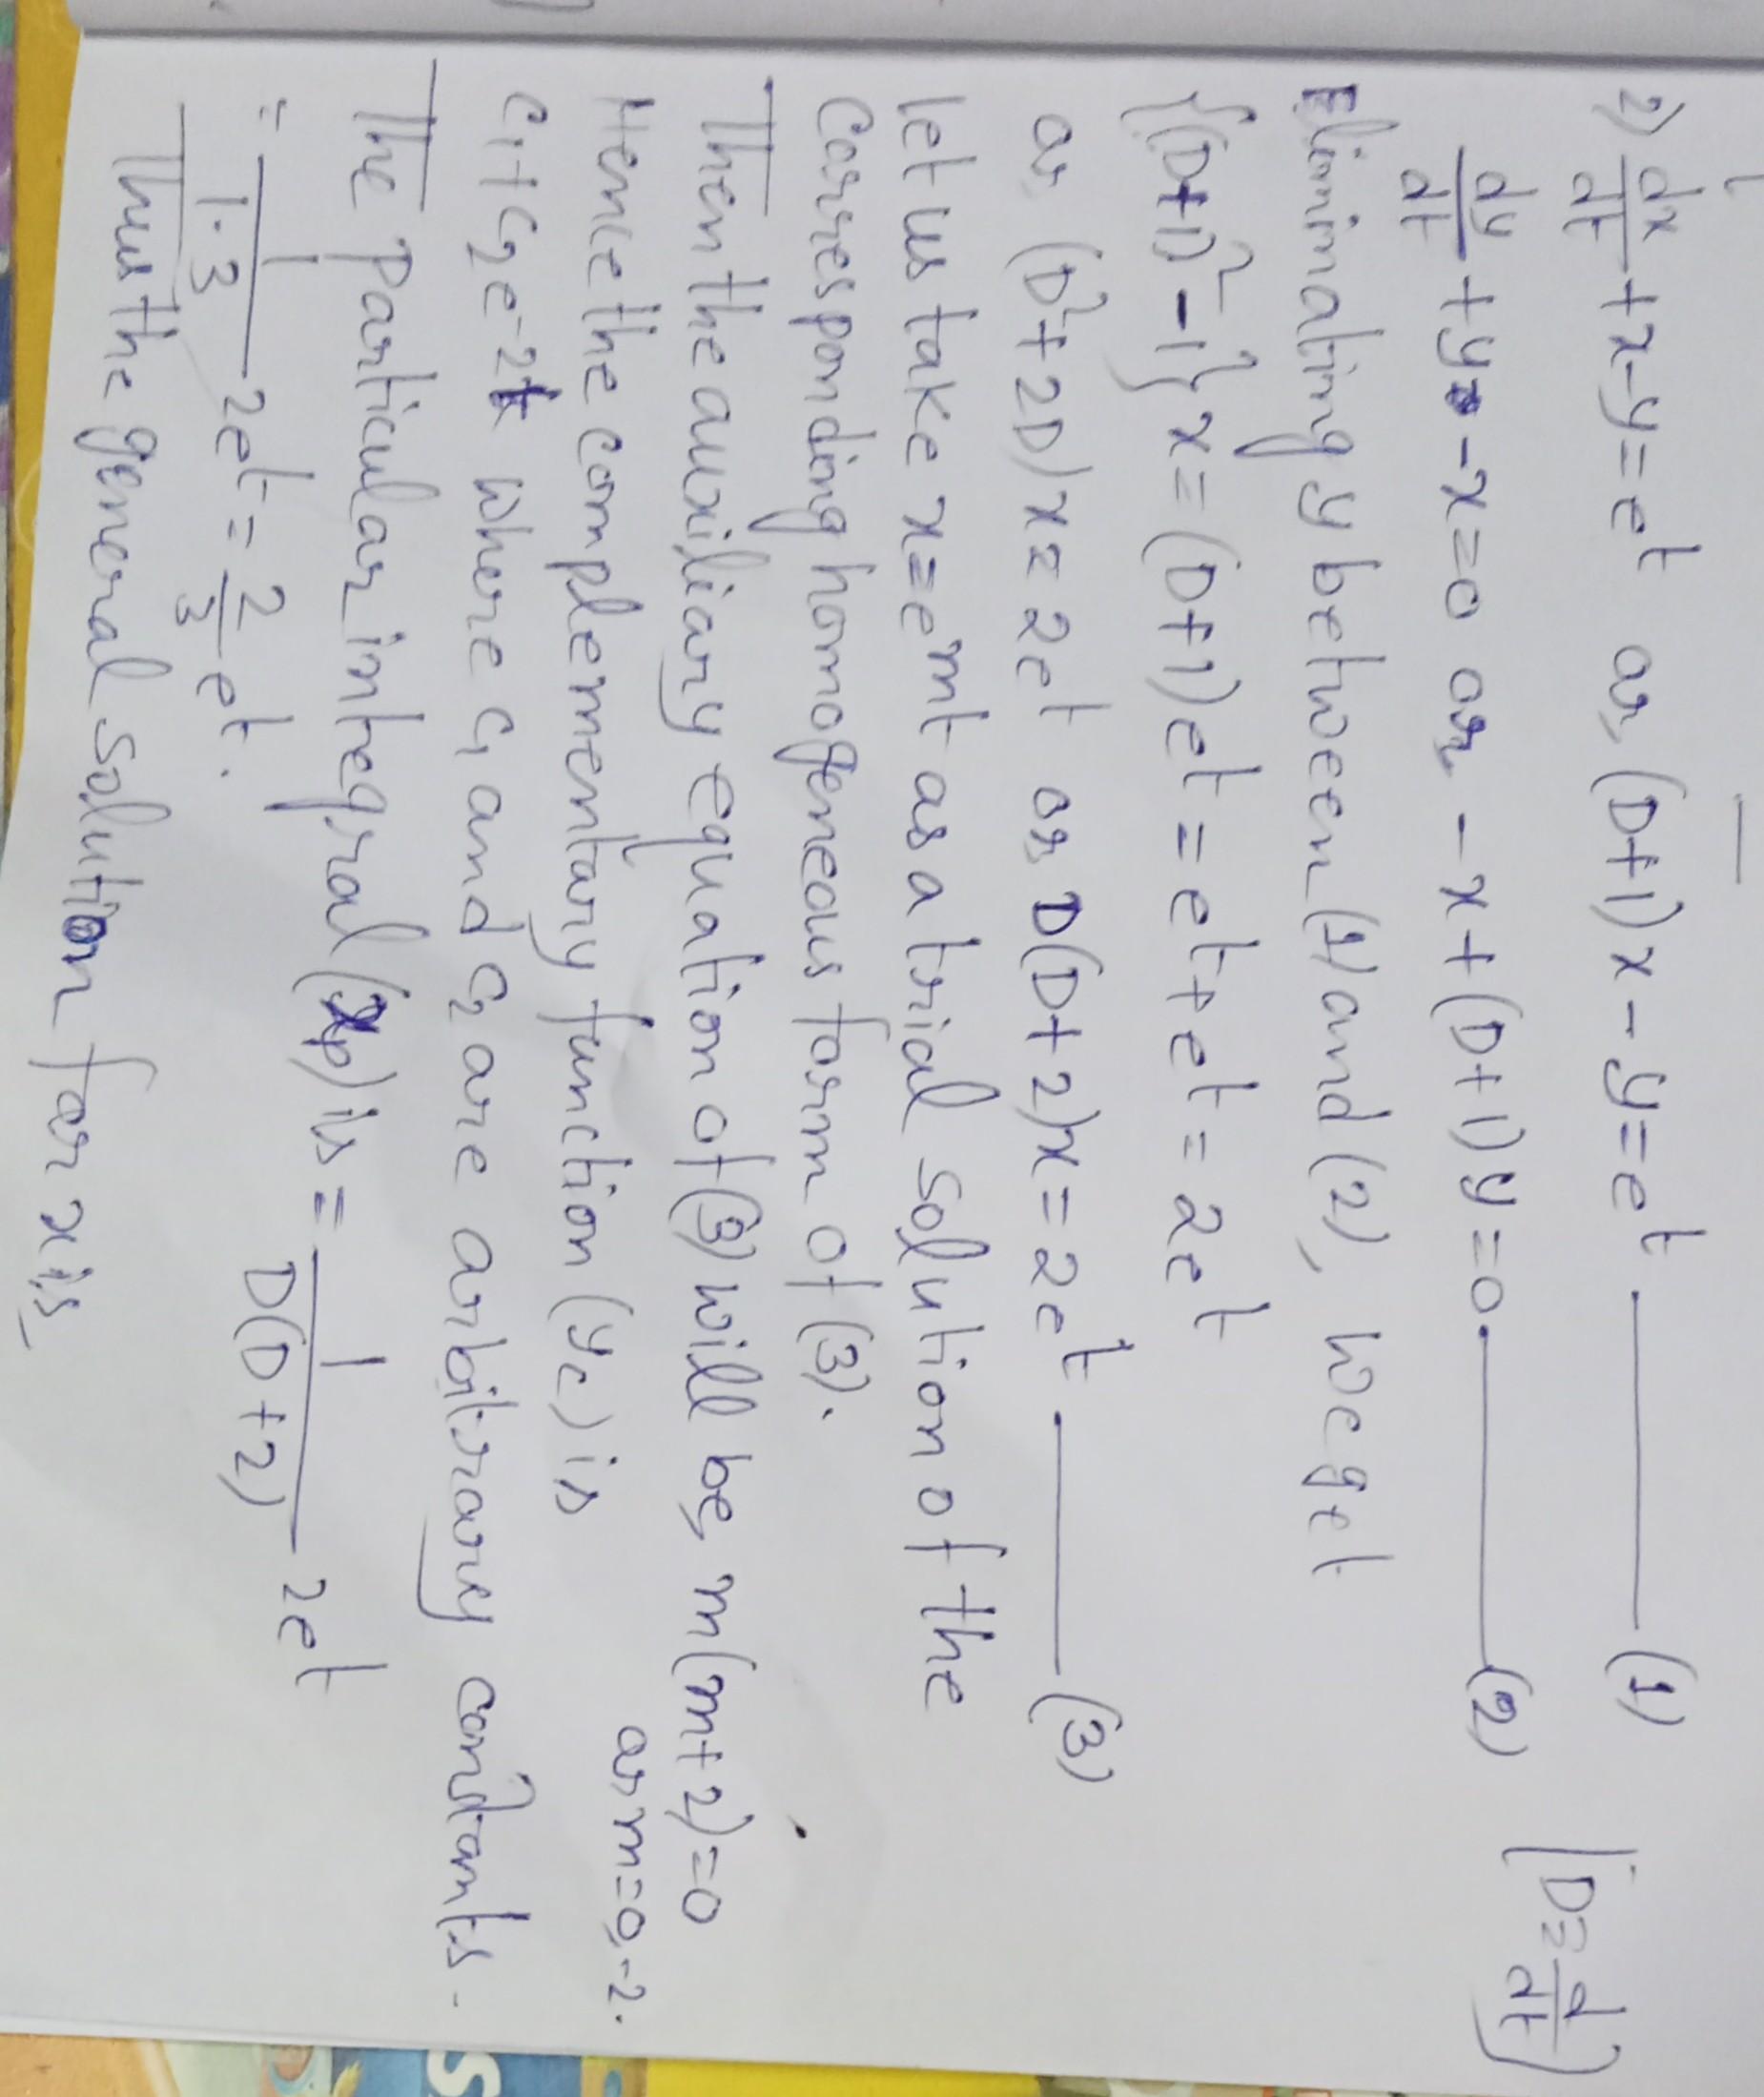 2) dx/dt + x - y = e^t or, (D+1)x - y = e^t ——— (1)
dy/dt + y - x = 0 or - x + (D+1)y = 0 ——— (2) [D ≡ d/dt]
Eliminating y between (1) and (2), we get
{(D+1)^2 - 1} x = (D+1)e^t = e^t + e^t = 2e^t
or (D^2 + 2D)x = 2e^t or, D(D+2)x = 2e^t ——— (3)
let us take x = e^mt as a trial solution of the
corresponding homogeneous form of (3).
Then the auxiliary equation of (3) will be, m(m+2) = 0
or m = 0, -2.
Hence the complementary function (yc) is
c1 + c2 e^-2t where c1 and c2 are arbitrary constants.
The particular integral (xp) is = 1/D(D+2) 2e^t
= 1/1·3 2e^t = 2/3 e^t.
Thus the general solution for x is,